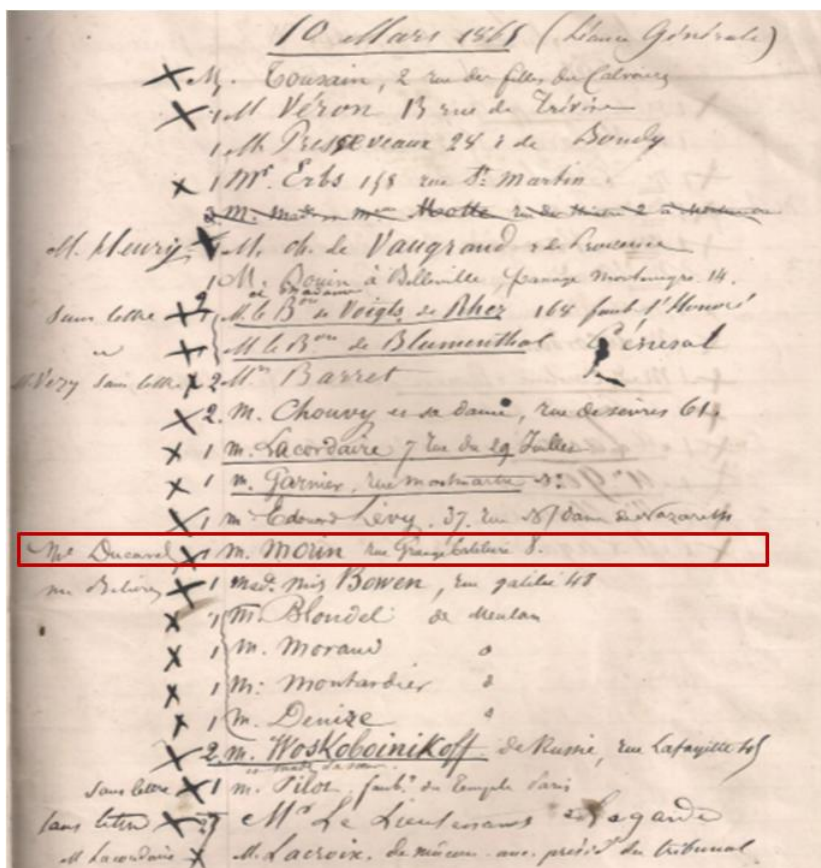 10 Mars 1865 (Séance Générale)
X M. Tousain, 2 rue des filles du Calvaire
X 1 M Véron 13 rue de Trévise
1 M. Presseveaux 28 r de Bondy
X 1 Mr. Erbs 158 rue St Martin
M. Motte
M. fleury X 1 M. ch. de Vaugrand r de Provence
1 M. Bouin à Belleville, passage Montenegro 14.
et madame
Sans lettre X 2 M. le Bon de Voigts de Rhez 168 faub St Honoré
X 1 M le Bon de Blumenthal Général
M. Very Sans lettre X 2 Mrs Barret
X 2. M. Chouvy et sa dame, rue de sèvres 61.
X 1 M. Lacordaire 7 rue du 29 Juillet
X 1 M. Garnier, rue montmartre
X 1 Mr Edouard Lévy, 37, rue N. Dame de Nazareth
Me Ducarel X 1 M. Morin rue Grange Batelière 8.
X 1 Med. Mis Bowen, rue galilée 48
X 1 M. Blondel de Meulan
X 1 M. Moraud
X 1 M. Montardier
X 1 M. Denize
X 2 M. Woskoboinikoff de Russie, rue Lafayette
Sans lettre X 1 M. Pilot faubg du Temple Paris
Sans lettre X Mr Le Lieutenant Lagarde
M Lacordaire X M. Lacroix, de mâcon anc. présidt du tribunal